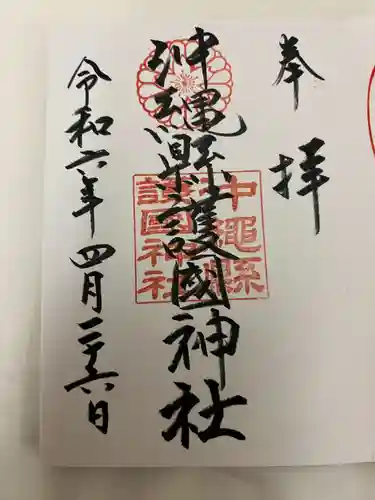 奉拝
沖縄縣護國神社
沖繩縣護國神社
令和六年四月二十六日